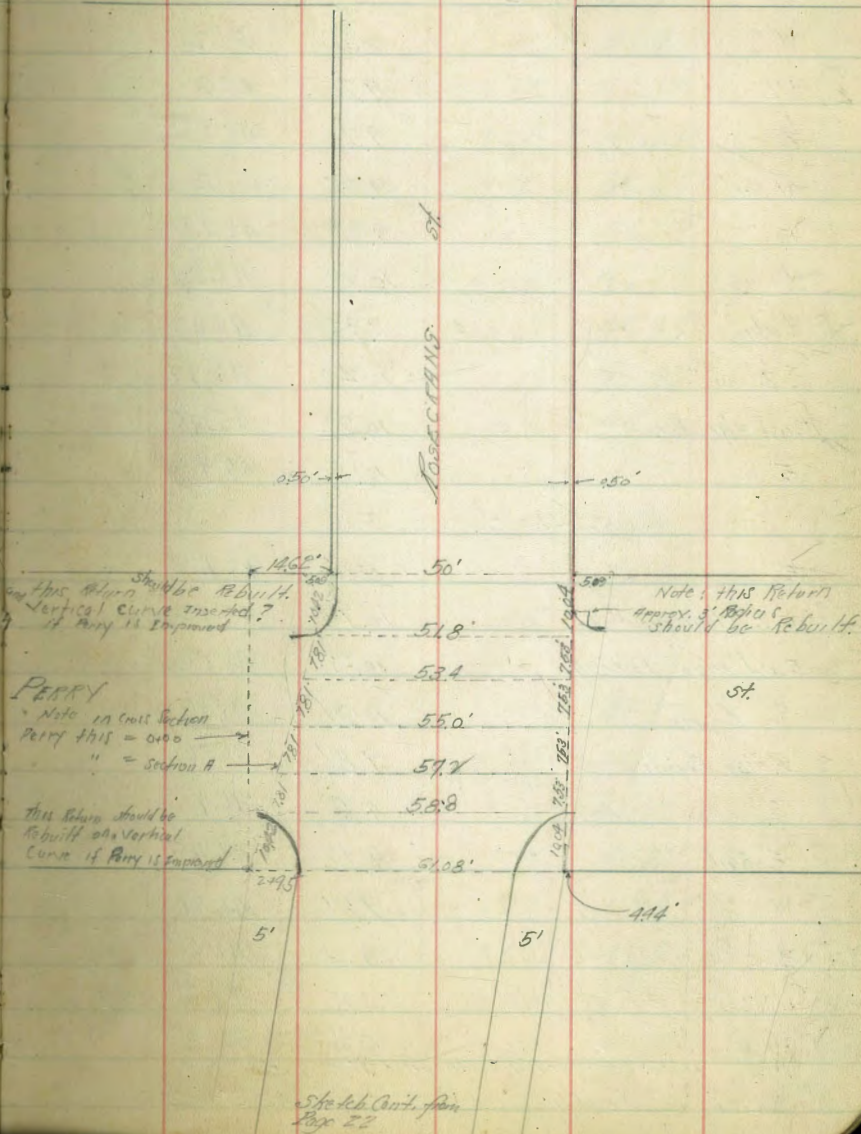 St.
ROSECRANS
0.50'
0.50'
14.62'
50'
this Return should be Rebuilt.
Vertical Curve Inserted?
if Perry is Improved
10.02
Note: this Return
Approx. 3' Radius
should be Rebuilt.
10.04
51.8'
7.81
7.63'
53.4
7.81
7.63'
St.
PERRY
Note in Cross Section
Perry this = 0+00
" = Section A
55.0'
7.81
7.63'
57.2
7.81
7.63'
58.8
This Return should be
Rebuilt on Vertical
Curve if Perry is Improved
10.02
10.04
61.08'
4.94'
5'
5'
Sketch Cont. from
Page 22